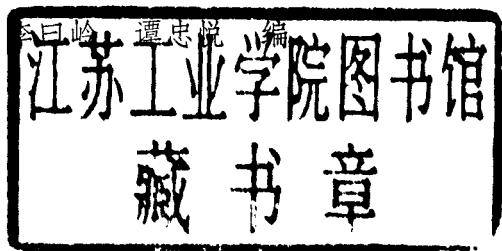 谭忠悦 编
江苏工业学院图书馆
藏书章